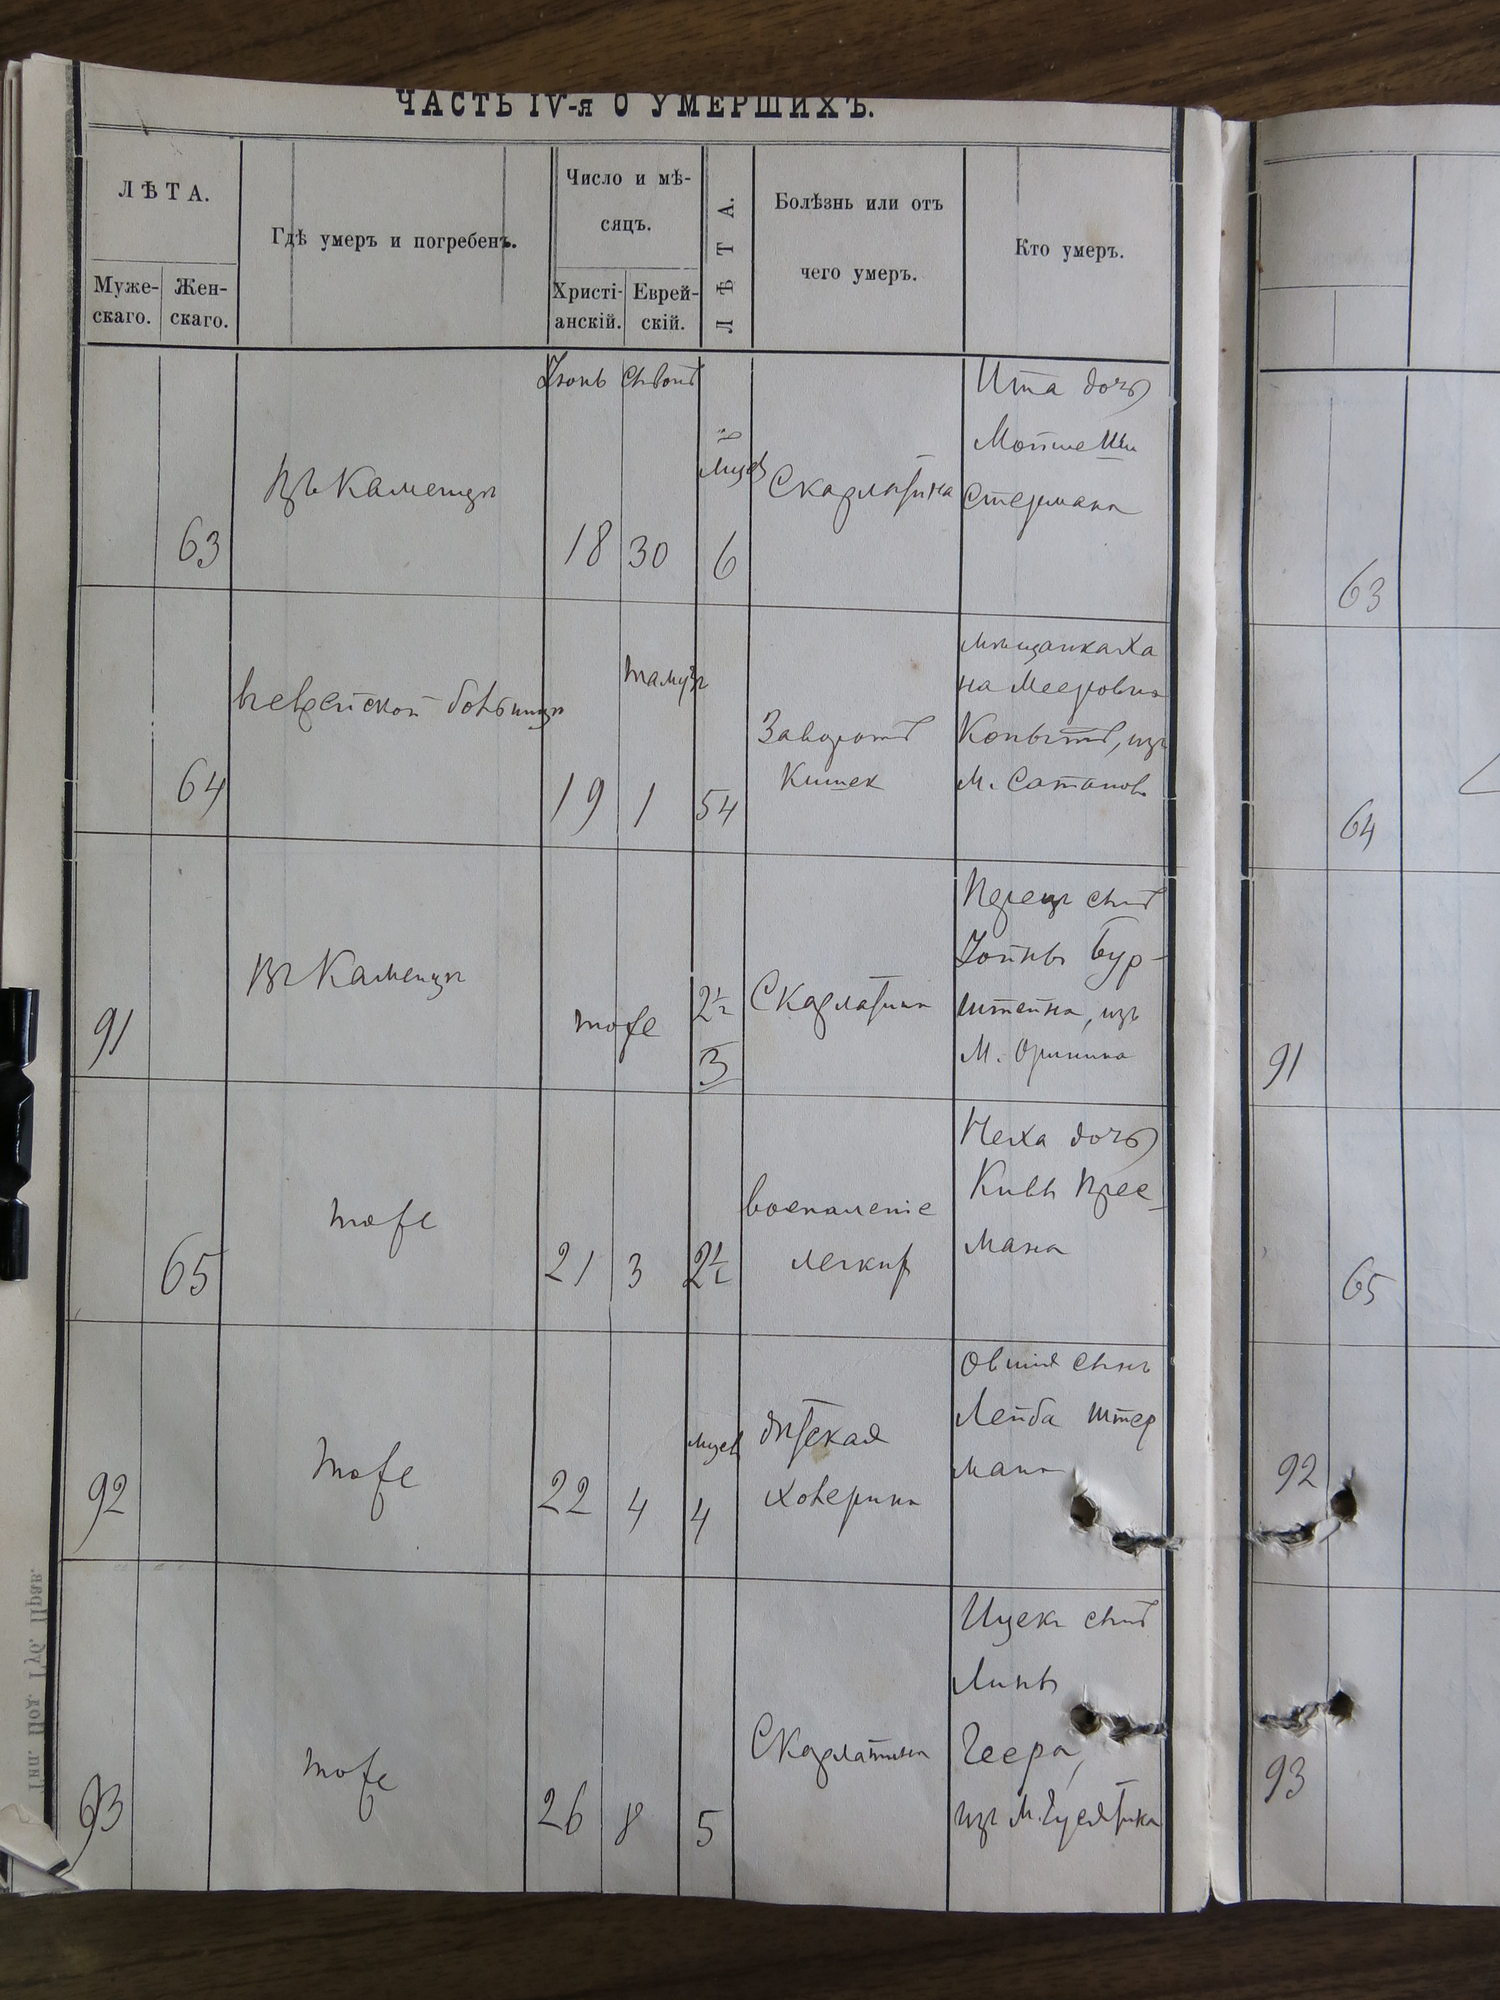 ЧАСТЬ IV-я О УМЕРШИХЪ.
ЛѢТА.
Муже-
скаго.
Жен-
скаго.
Гдѣ умеръ и погребенъ.
Число и мѣ-
сяцъ.
Христі-
анскій.
Еврей-
скій.
ЛѢТА.
Болѣзнь или отъ
чего умеръ.
Кто умеръ.
63
Въ Каменцѣ
Іюнь
18
30
6
Скарлатина
Ита дочь
Мошке
Стермана
64
Вееврейской больницѣ
19
тамузъ
1
54
Заворотъ
Кишек
мѣщанка Ха
на Мееровна
Копытъ, изъ
М. Сатанова
91
Въ Каменцѣ
тоже
2½
3
Скарлатина
Перецъ сынъ
Бур-
штейна, изъ
М. Оринина
65
тоже
21
3
2½
воспаленіе
легких
дочь
Кивы
мана
92
тоже
22
4
4
дѣтская
холерина
Овшія сынъ
Лейба Штер
мана
93
тоже
26
8
5
Скарлатина
Ицекъ сынъ
Геера,
изъ М. Гусятина
63
64
91
65
92
93
Тип. Под. Губ. Прав.